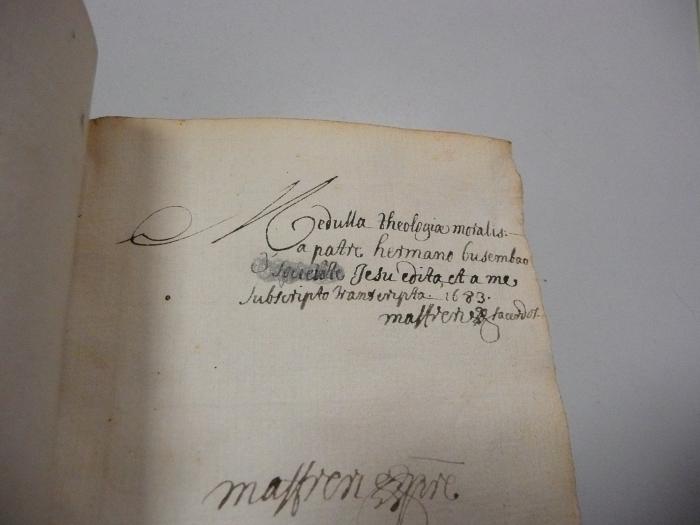 Medulla theologiæ moralis.
a patre hermano busembao
è societate Jesu edita, et a me
subscripto transcripta. 1683.
massren sacerdos.
massren pre